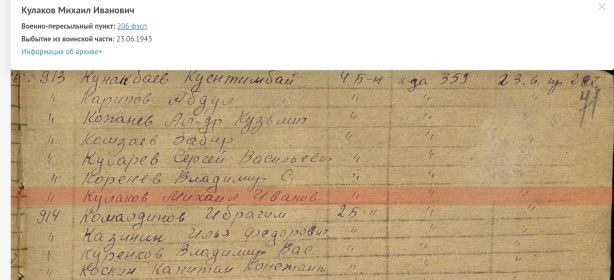 Кулаков Михаил Иванович
Военно-пересыльный пункт: 206 фзсп
Выбытие из воинской части: 23.06.1943
Информация об архиве+
913 Кунакбаев Куентимбай 4 Б-н к-да 359 23.6. пр 71
" Карипов Абдул " " "
" Копанев Ал-др Кузьмич " " "
" Комзаев Забир " " "
" Кубарев Сергей Васильевич " " "
" Коренев Владимир С. " " "
" Кулаков Михаил Иванов. " " "
914 Комалдинов Ибрагим 2 Б-н " "
" Казинин Илья Федорович " " "
" Куренков Владимир Вас. " " "
" Коскин Капитан Констант